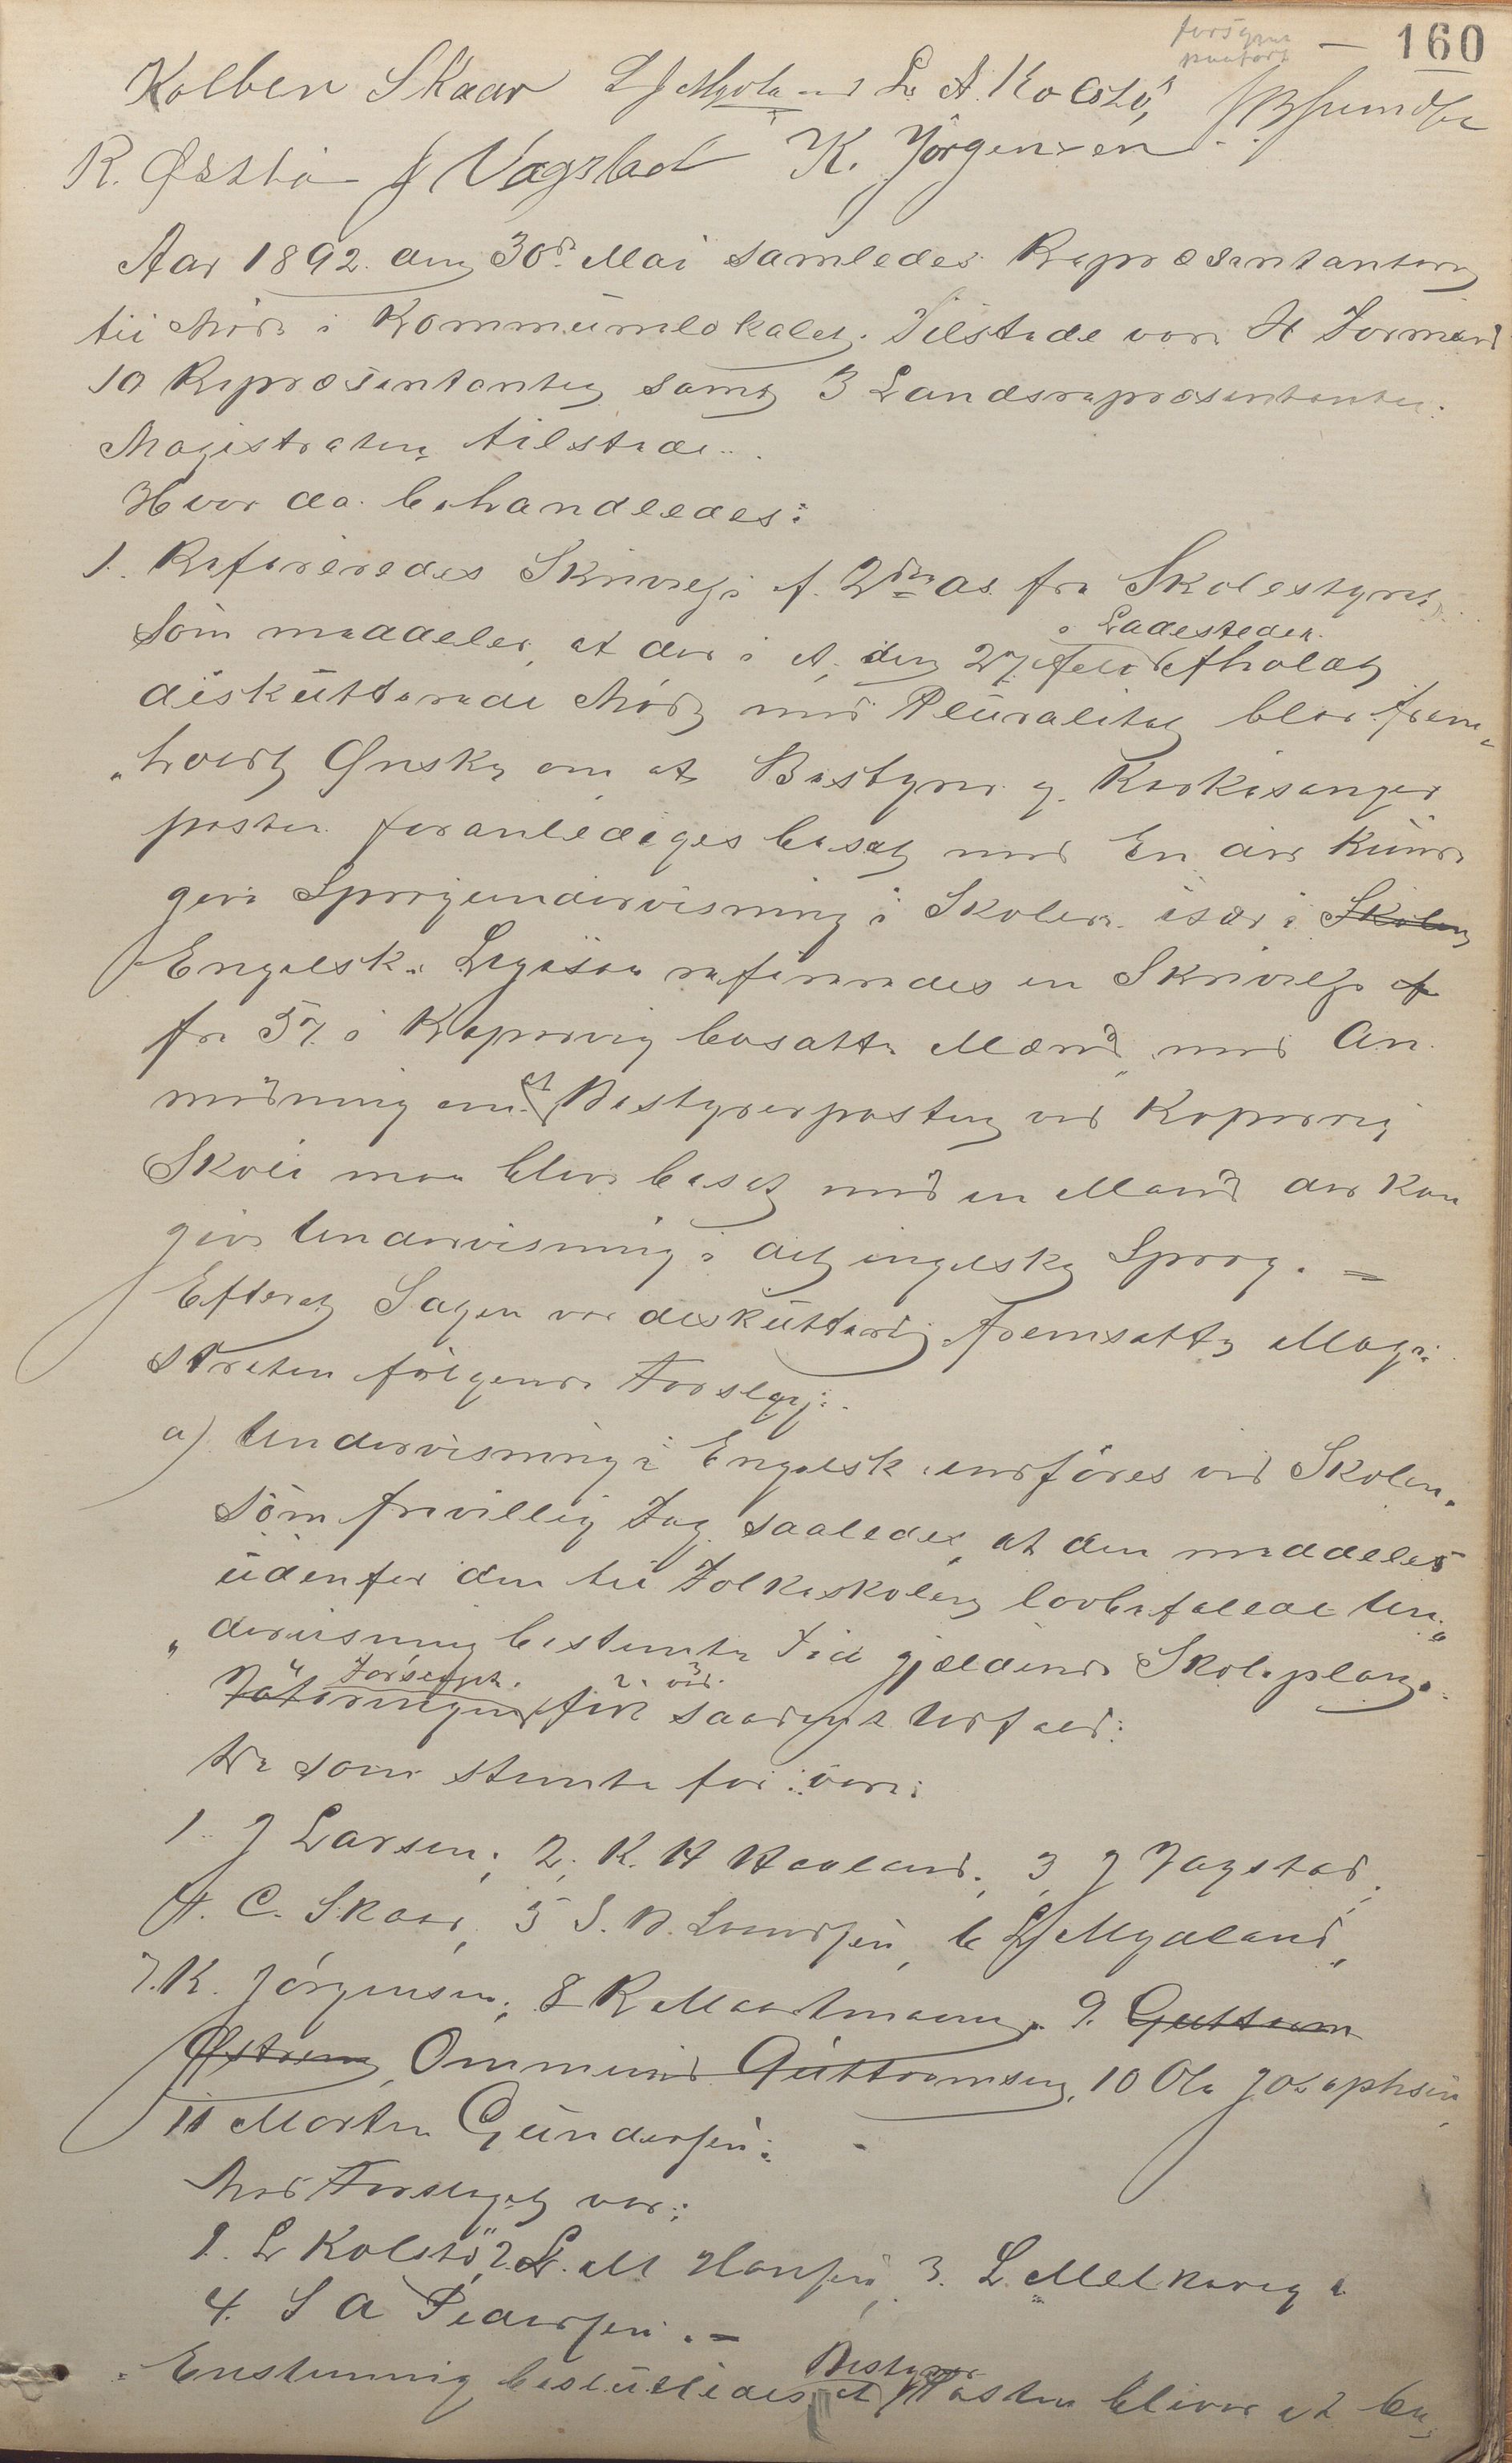 160
Kolben Skaar L J Myhland L. A. Kolstö,
R. Østbö J Vagstad K. Jörgensen
Aar 1892 den 30d Mai samledes Repræsentanterne
til Möde i Kommunelokalet. Tilstede var 4 Formænd
10 Repræsentanter samt 3 Landsrepræsentanter.
Magistraten tilstede.
Hvor da behandledes:
1. Refereredes Skrivelse af 2den ds. fra Skolestyret
som meddeler, at der i et den 27 Febr i Ladestedet afholdt
diskutterende Möde med Pluralitet blev frem-
hævet Ønske om at Bestyrer og Kirkesanger
posten foranlediges besat med En der kunde
give Sprogundervisning i Skolen især i Skolen
Engelsk. Ligesaa refereredes en Skrivelse af
fra 57 i Kopervig bosatte Mænd med An-
modning om at Bestyrerposten ved Kopervig
Skole maa blive besat med en Mand der kan
give Undervisning i det engelske Sprog. =
Efterat Sagen var diskutteret fremsatte Magi-
straten fölgende Forslag:
a) Undervisning i Engelsk indföres ved Skolen
som frivillig Fag saaledes, at den meddeles
udenfor den til Folkeskolen lovbefalede Un-
dervisning bestemte Tid gjældende Skoleplan.
Voteringen Forslaget fik saadant Udfald:
De som stemte for var:
1. J Larsen, 2. K. H Haaland, 3 J Vagstad,
4. C. Skaar, 5 S. B. Lundsen, 6 L J Myhland,
7. K. Jörgensen, 8 R Maartmann, 9. Guttorm
Østrem, Ommund Guttormsen, 10 Ole Josephsen
11 Morten Gundersen.
Mod Forslaget var:
1. L Kolstö, 2. L. M Hansen, 3. L. Melkevig
4. S A Pedersen. =
Enstemmig besluttedes at Bestyrer Posten bliver at be-